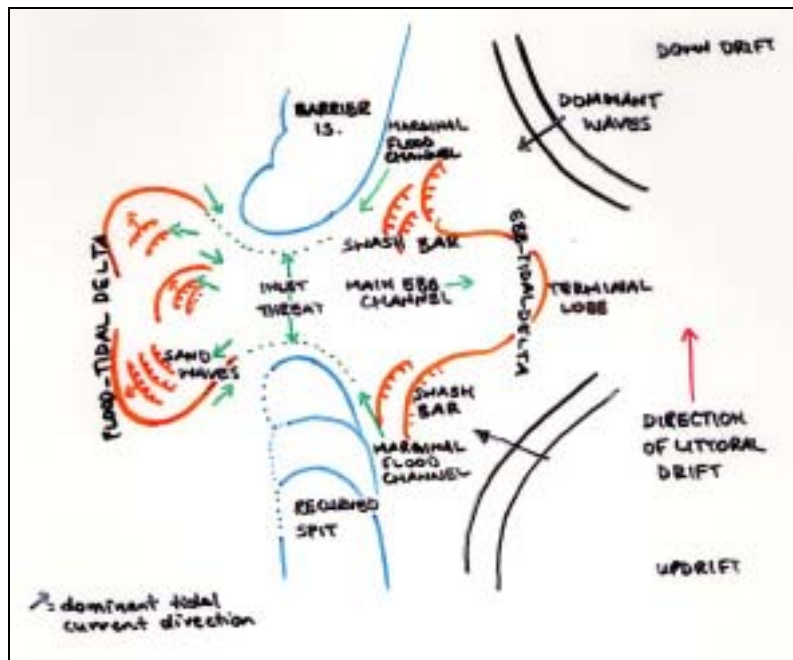 DOWN DRIFT
BARRIER
IS.
DOMINANT
WAVES
MARGINAL
FLOOD
CHANNEL
SWASH BAR
EBB-TIDAL-DELTA
FLOOD-TIDAL DELTA
INLET
THREAT
MAIN EBB
CHANNEL
TERMINAL
LOBE
SAND
WAVES
SWASH
BAR
MARGINAL
FLOOD
CHANNEL
DIRECTION
OF LITTORAL
DRIFT
RECURVED
SPIT
UPDRIFT
= dominant tidal
current direction